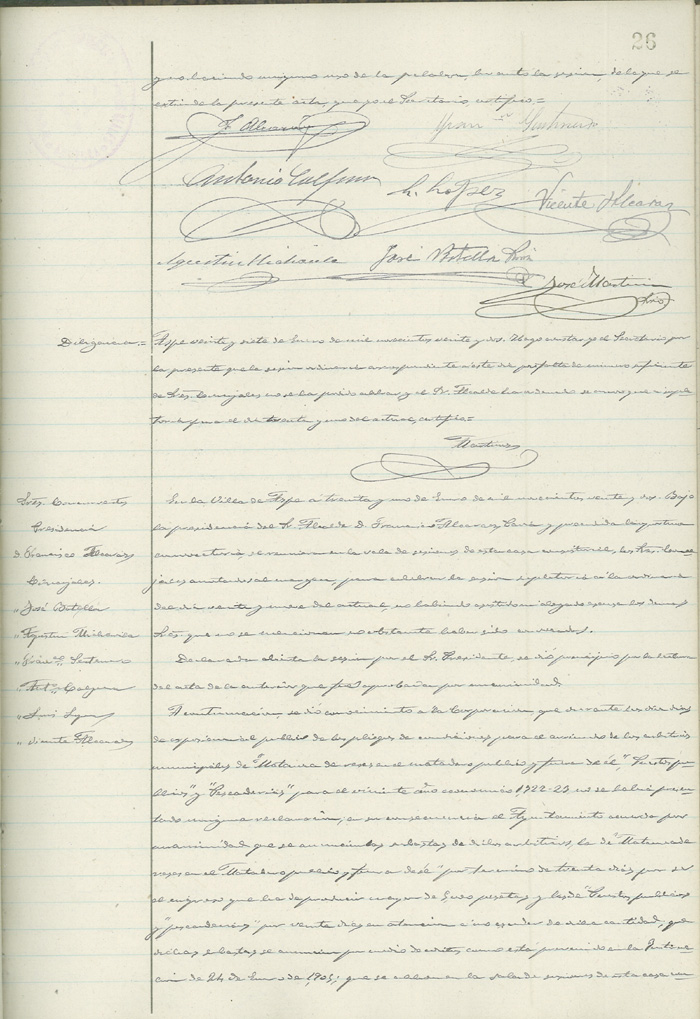 26
y no haciendo ninguno uso de la palabra, levantó la sesión, de la que se
extiende la presente acta, que yo el Secretario, certifico.=
F. Alcaraz
Antonio Calpena
L. Lopez
Vicente Alcaraz
Agustin Miralles
José Botella
José Martinez
Srio.
Diligencia.= Aspe veinte y siete de Enero de mil novecientos veinte y dos. Hago constar yo el Secretario por
la presente que la sesión ordinaria correspondiente a este día, por falta de número suficiente
de Sres. Concejales no se ha podido celebrar y el Sr. Alcalde ha ordenado se convoque
para el día treinta y uno del actual, certifico=
Martinez
Sres. Concurrentes
Presidencia
D. Francisco Alcaraz
Concejales.
" José Botella
" Agustin
" Franco.
" Anto. Calpena
" Luis
" Vicente Alcaraz
En la Villa de Aspe a treinta y uno de Enero de mil novecientos veinte y dos. Bajo
la presidencia del Sr. Alcalde D. Francisco Alcaraz y precedida la oportuna
convocatoria, se reunieron en la sala de sesiones de esta casa consistorial, los Sres. Conce-
jales anotados al margen, para celebrar la sesión supletoria a la ordinaria
del día veinte y nueve del actual, no habiendo asistido ni alegado excusa los demás
Sres. que no se mencionan no obstante haber sido convocados.
Declarada abierta la sesión por el Sr. Presidente, se dió principio por la lectura
del acta de la anterior que fue aprobada por unanimidad.
A continuación, se dió conocimiento a la Corporación, que durante los diez días
de exposición al público de los pliegos de condiciones para el arriendo de los arbitrios
municipales de "Matanza de reses en el matadero público y fuera de él", "Puestos pú-
blicos" y "Pescaderías" para el viniente año económico 1922-23, no se había presen-
tado ninguna reclamación; en su consecuencia el Ayuntamiento acuerda por
unanimidad que se anuncien las subastas de dichos arbitrios, la de "Matanza de
reses en el Matadero público y fuera de él" por término de treinta días por ser
el ingreso que ha de producir mayor de pesetas y las de "Puestos públicos"
y "pescaderías" por veinte días en atención a no exceder de dicha cantidad, que
dichas subastas se anuncien por medio de edictos como está prevenido en la Instruc-
ción de 24 de Enero de 1905; que se celebren en la sala de sesiones de esta casa con-